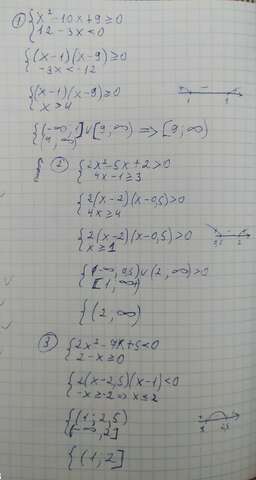 ① { x² - 10x + 9 ≥ 0
12 - 3x < 0
{ (x-1)(x-9) ≥ 0
-3x < -12
{ (x-1)(x-9) ≥ 0
x > 4
- 1 9
{ (-∞, 1] ∪ [9, ∞) => [9; ∞)
(4, ∞)
② { 2x² - 5x + 2 > 0
4x - 1 ≥ 3
{ 2(x-2)(x-0,5) > 0
4x ≥ 4
{ 2(x-2)(x-0,5) > 0
x ≥ 1
- 0,5 2
{ (-∞, 0,5) ∪ (2, ∞) > 0
[1, ∞)
{ (2, ∞)
③ { 2x² - 7x + 5 < 0
2 - x ≥ 0
{ 2(x-2,5)(x-1) < 0
-x ≥ -2 => x ≤ 2
{ (1; 2,5)
(-∞, 2]
1 2,5
{ (1; 2]